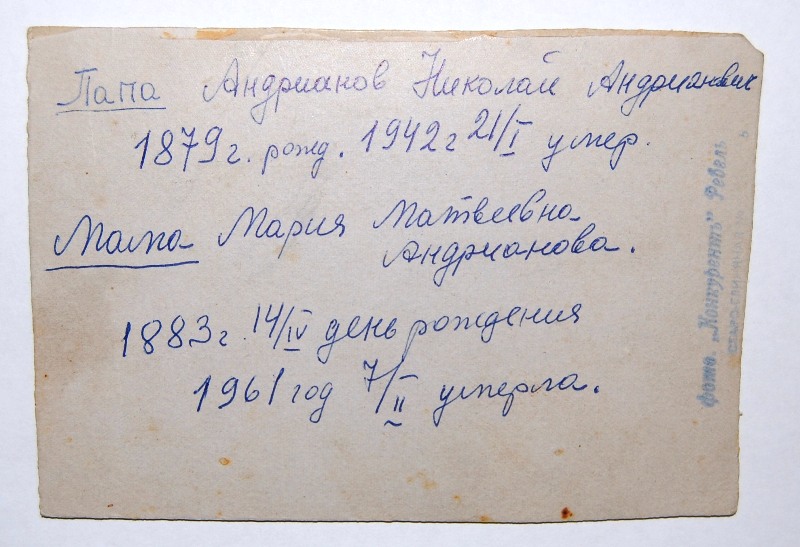 Папа Андрианов Николай Андрианович
1879 г. рожд. 1942 г 21/I умер.
Мама Мария Матвеевна
Андрианова.
1883 г. 14/IV день рождения
1961 год 7/II умерла.
фото. „Конкурентъ" Ревель